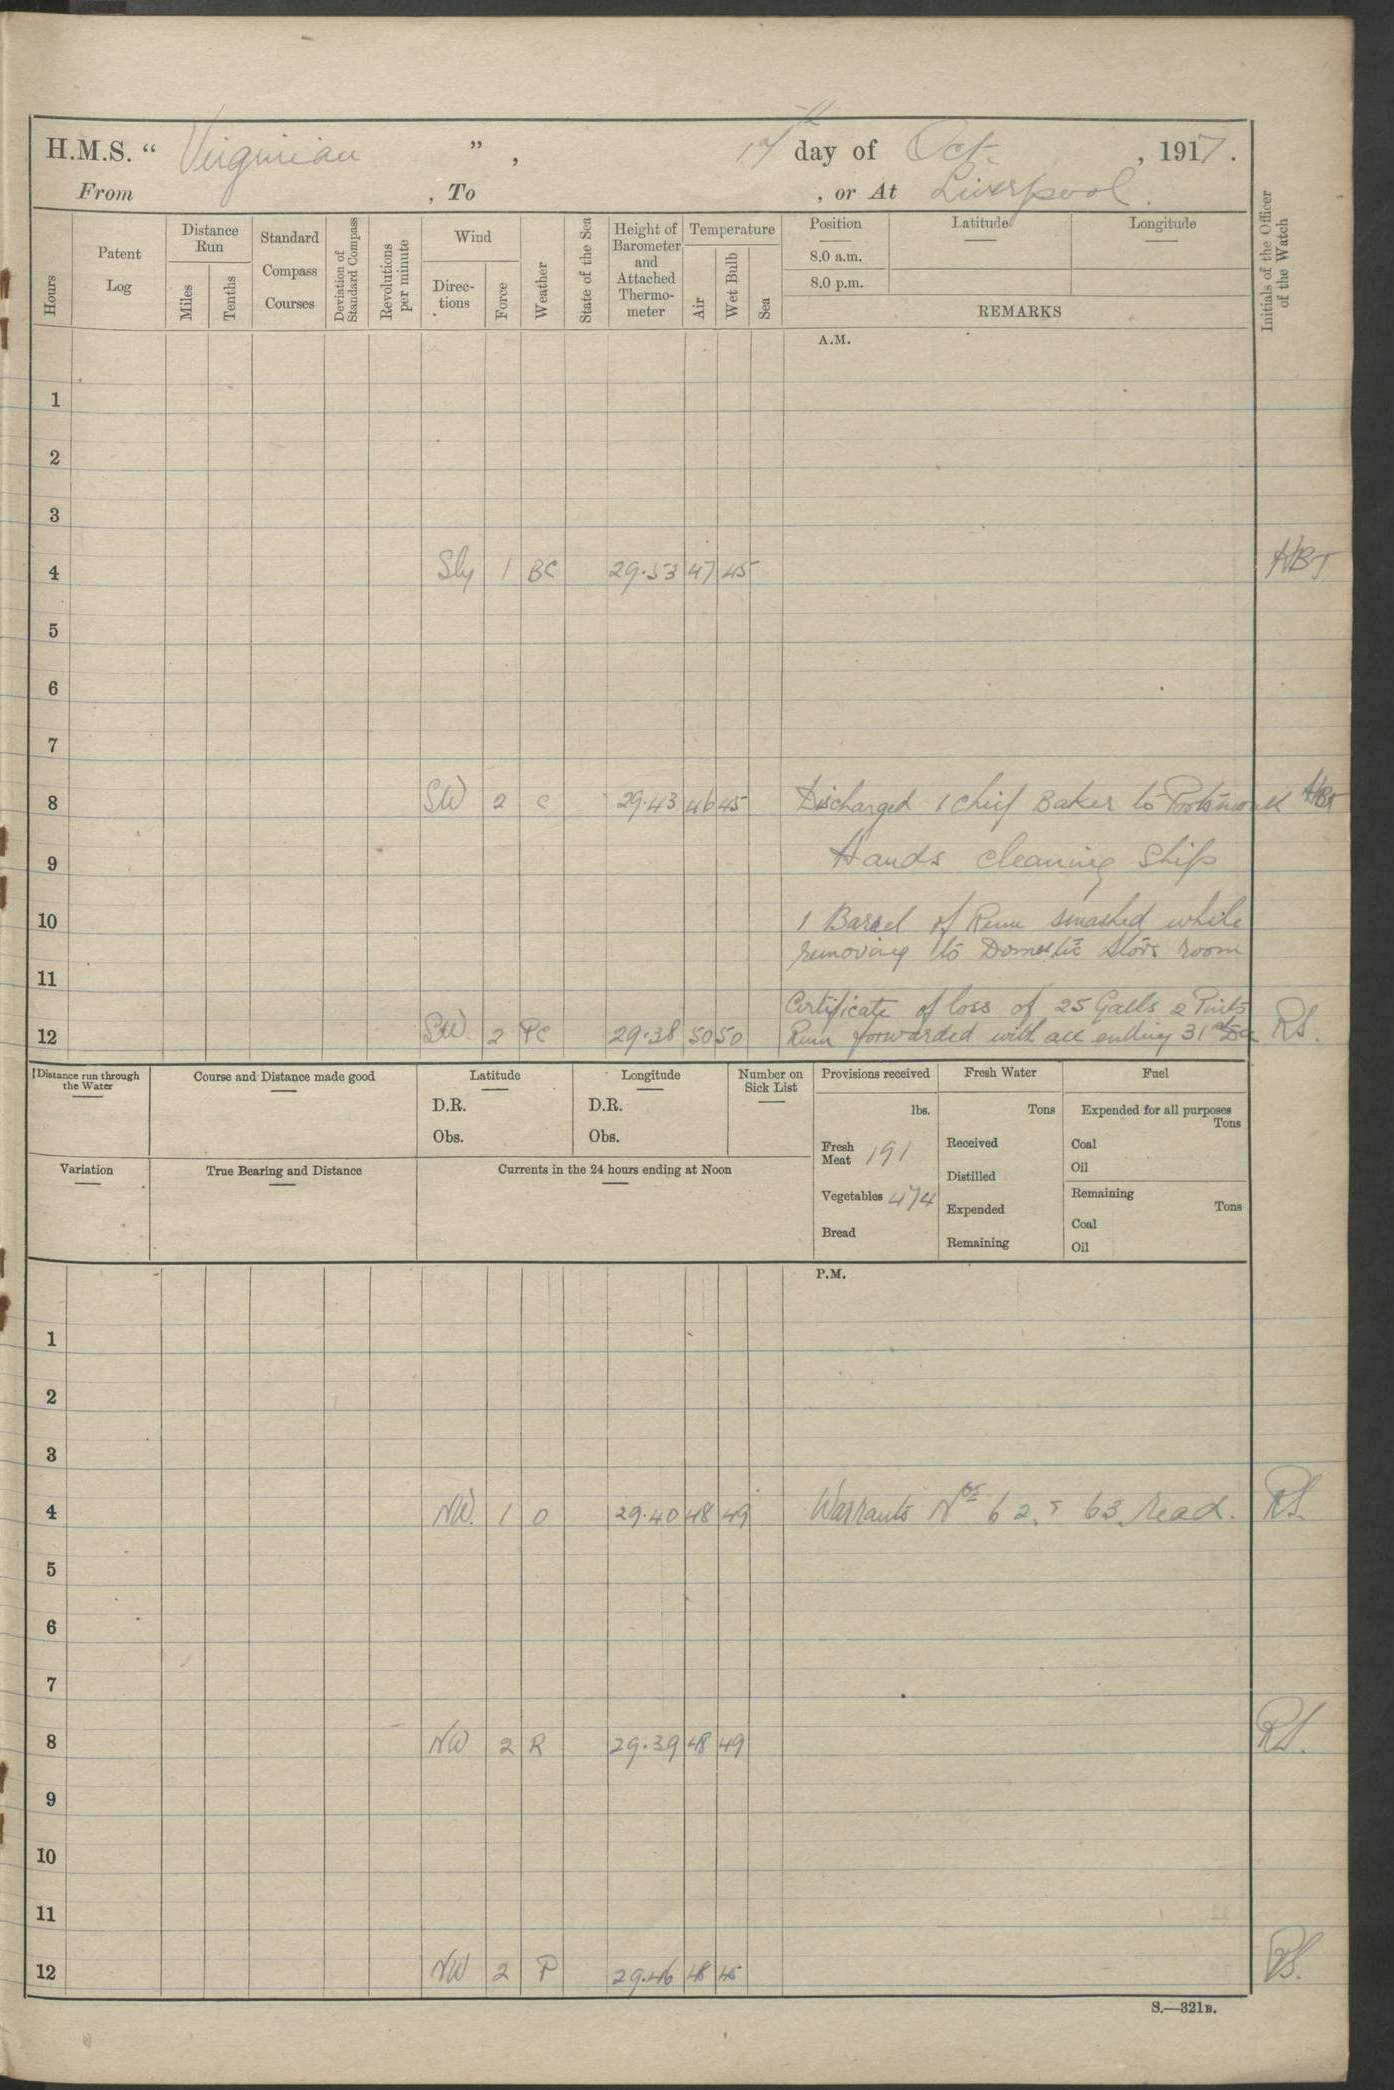 H.M.S. “ Virginian ” , 17th day of Oct. , 1917 .
From , To , or At Liverpool .
Hours
Patent Log
Distance Run
Miles
Tenths
Standard Compass Courses
Deviation of Standard Compass
Revolutions per minute
Wind
Direc-tions
Force
Weather
State of the Sea
Height of Barometer and Attached Thermo-meter
Temperature
Air
Wet Bulb
Sea
Position Latitude Longitude
8.0 a.m.
8.0 p.m.
REMARKS
Initials of the Officer of the Watch
A.M.
1
2
3
4 Sly 1 BC 29.53 47 45 HBT
5
6
7
8 SW 2 C 29.43 46 45 Discharged 1 chief Baker to Portsmouth HBT
9 Hands cleaning ship
10 1 Barrel of Rum smashed while
removing to Domestic Store room
11
Certificate of loss of 25 Galls 2 Pints
12 SW 2 PC 29.38 50 50 Rum forwarded with acc ending 31st Dec RS.
Distance run through the Water
Course and Distance made good
Latitude
D.R.
Obs.
Longitude
D.R.
Obs.
Number on Sick List
Provisions received
lbs.
Fresh Meat 191
Vegetables 474
Bread
Fresh Water
Tons
Received
Distilled
Expended
Remaining
Fuel
Expended for all purposes
Tons
Coal
Oil
Remaining
Tons
Coal
Oil
Variation
True Bearing and Distance
Currents in the 24 hours ending at Noon
P.M.
1
2
3
4 NW. 1 O 29.40 48 49 Warrants Nos 62 & 63 read. RS.
5
6
7
8 NW 2 R 29.39 48 49 RS.
9
10
11
12 NW 2 P 29.46 48 45 RS.
S.—321B.